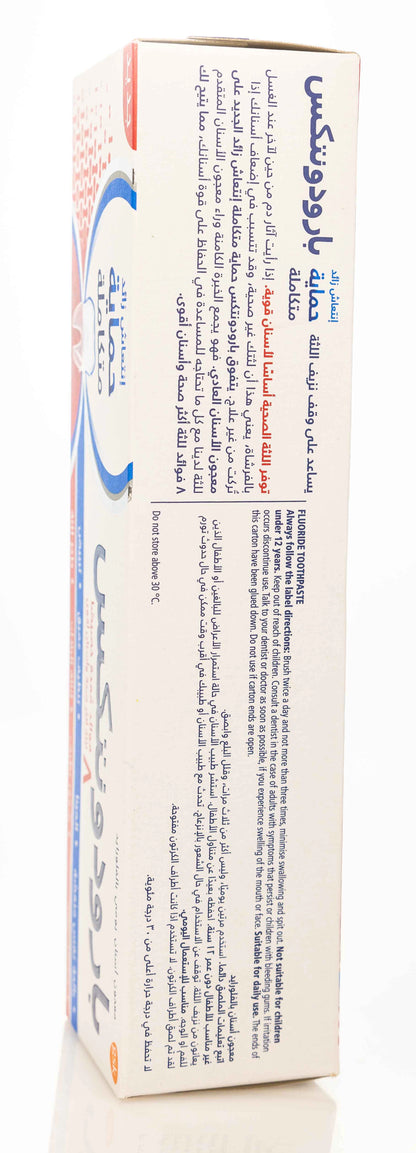 بارودونتكس
إنتعاش زائد
حماية
متكاملة
يساعد على وقف نزيف اللثة
إذا رأيت آثار دم من حين لآخر عند الغسل
بالفرشاة، يعني هذا أن لثتك غير صحية، وقد تتسبب في إضعاف أسنانك إذا
تُركت من غير علاج. يتفوق بارودونتكس حماية متكاملة إنتعاش زائد الجديد على
معجون الأسنان العادي. فهو يجمع الخبرة الكامنة وراء معجون الأسنان المتقدم
للثة لدينا مع كل ما تحتاجه للمساعدة في الحفاظ على قوة أسنانك، مما يتيح لك
٨ فوائد للثة أكثر صحة وأسنان أقوى.
توفر اللثة الصحية أساسًا لأسنان قوية.
FLUORIDE TOOTHPASTE
Always follow the label directions: Brush twice a day and not more than three times, minimise swallowing and spit out. Not suitable for children
under 12 years. Keep out of reach of children. Consult a dentist in the case of adults with symptoms that persist or children with bleeding gums. If irritation
occurs discontinue use. Talk to your dentist or doctor as soon as possible, if you experience swelling of the mouth or face. Suitable for daily use. The ends of
this carton have been glued down. Do not use if carton ends are open.
Do not store above 30 °C.
معجون أسنان بالفلورايد
اتبع تعليمات الملصق دائما. استخدم مرتين يوميًا، وليس أكثر من ثلاث مرات، وقلل البلع وابصق.
غير مناسب للأطفال دون عمر ١٢ سنة. احفظه بعيدًا عن متناول الأطفال. استشر طبيب الأسنان في حالة استمرار الأعراض للبالغين أو الأطفال الذين
يعانون من نزيف اللثة. توقف عن الاستخدام في حال الشعور بالإنزعاج. تحدث مع طبيب الأسنان أو طبيبك في أقرب وقت ممكن في حال حدوث تورم
للفم أو الوجه. مناسب للإستعمال اليومي.
لقد تم لصق أطراف الكرتون. لا تستخدم إذا كانت أطراف الكرتون مفتوحة.
لا تحفظ في درجة حرارة أعلى من ٣٠ درجة مئوية.
إنتعاش زائد
حماية
متكاملة
بارودونتكس
gsk